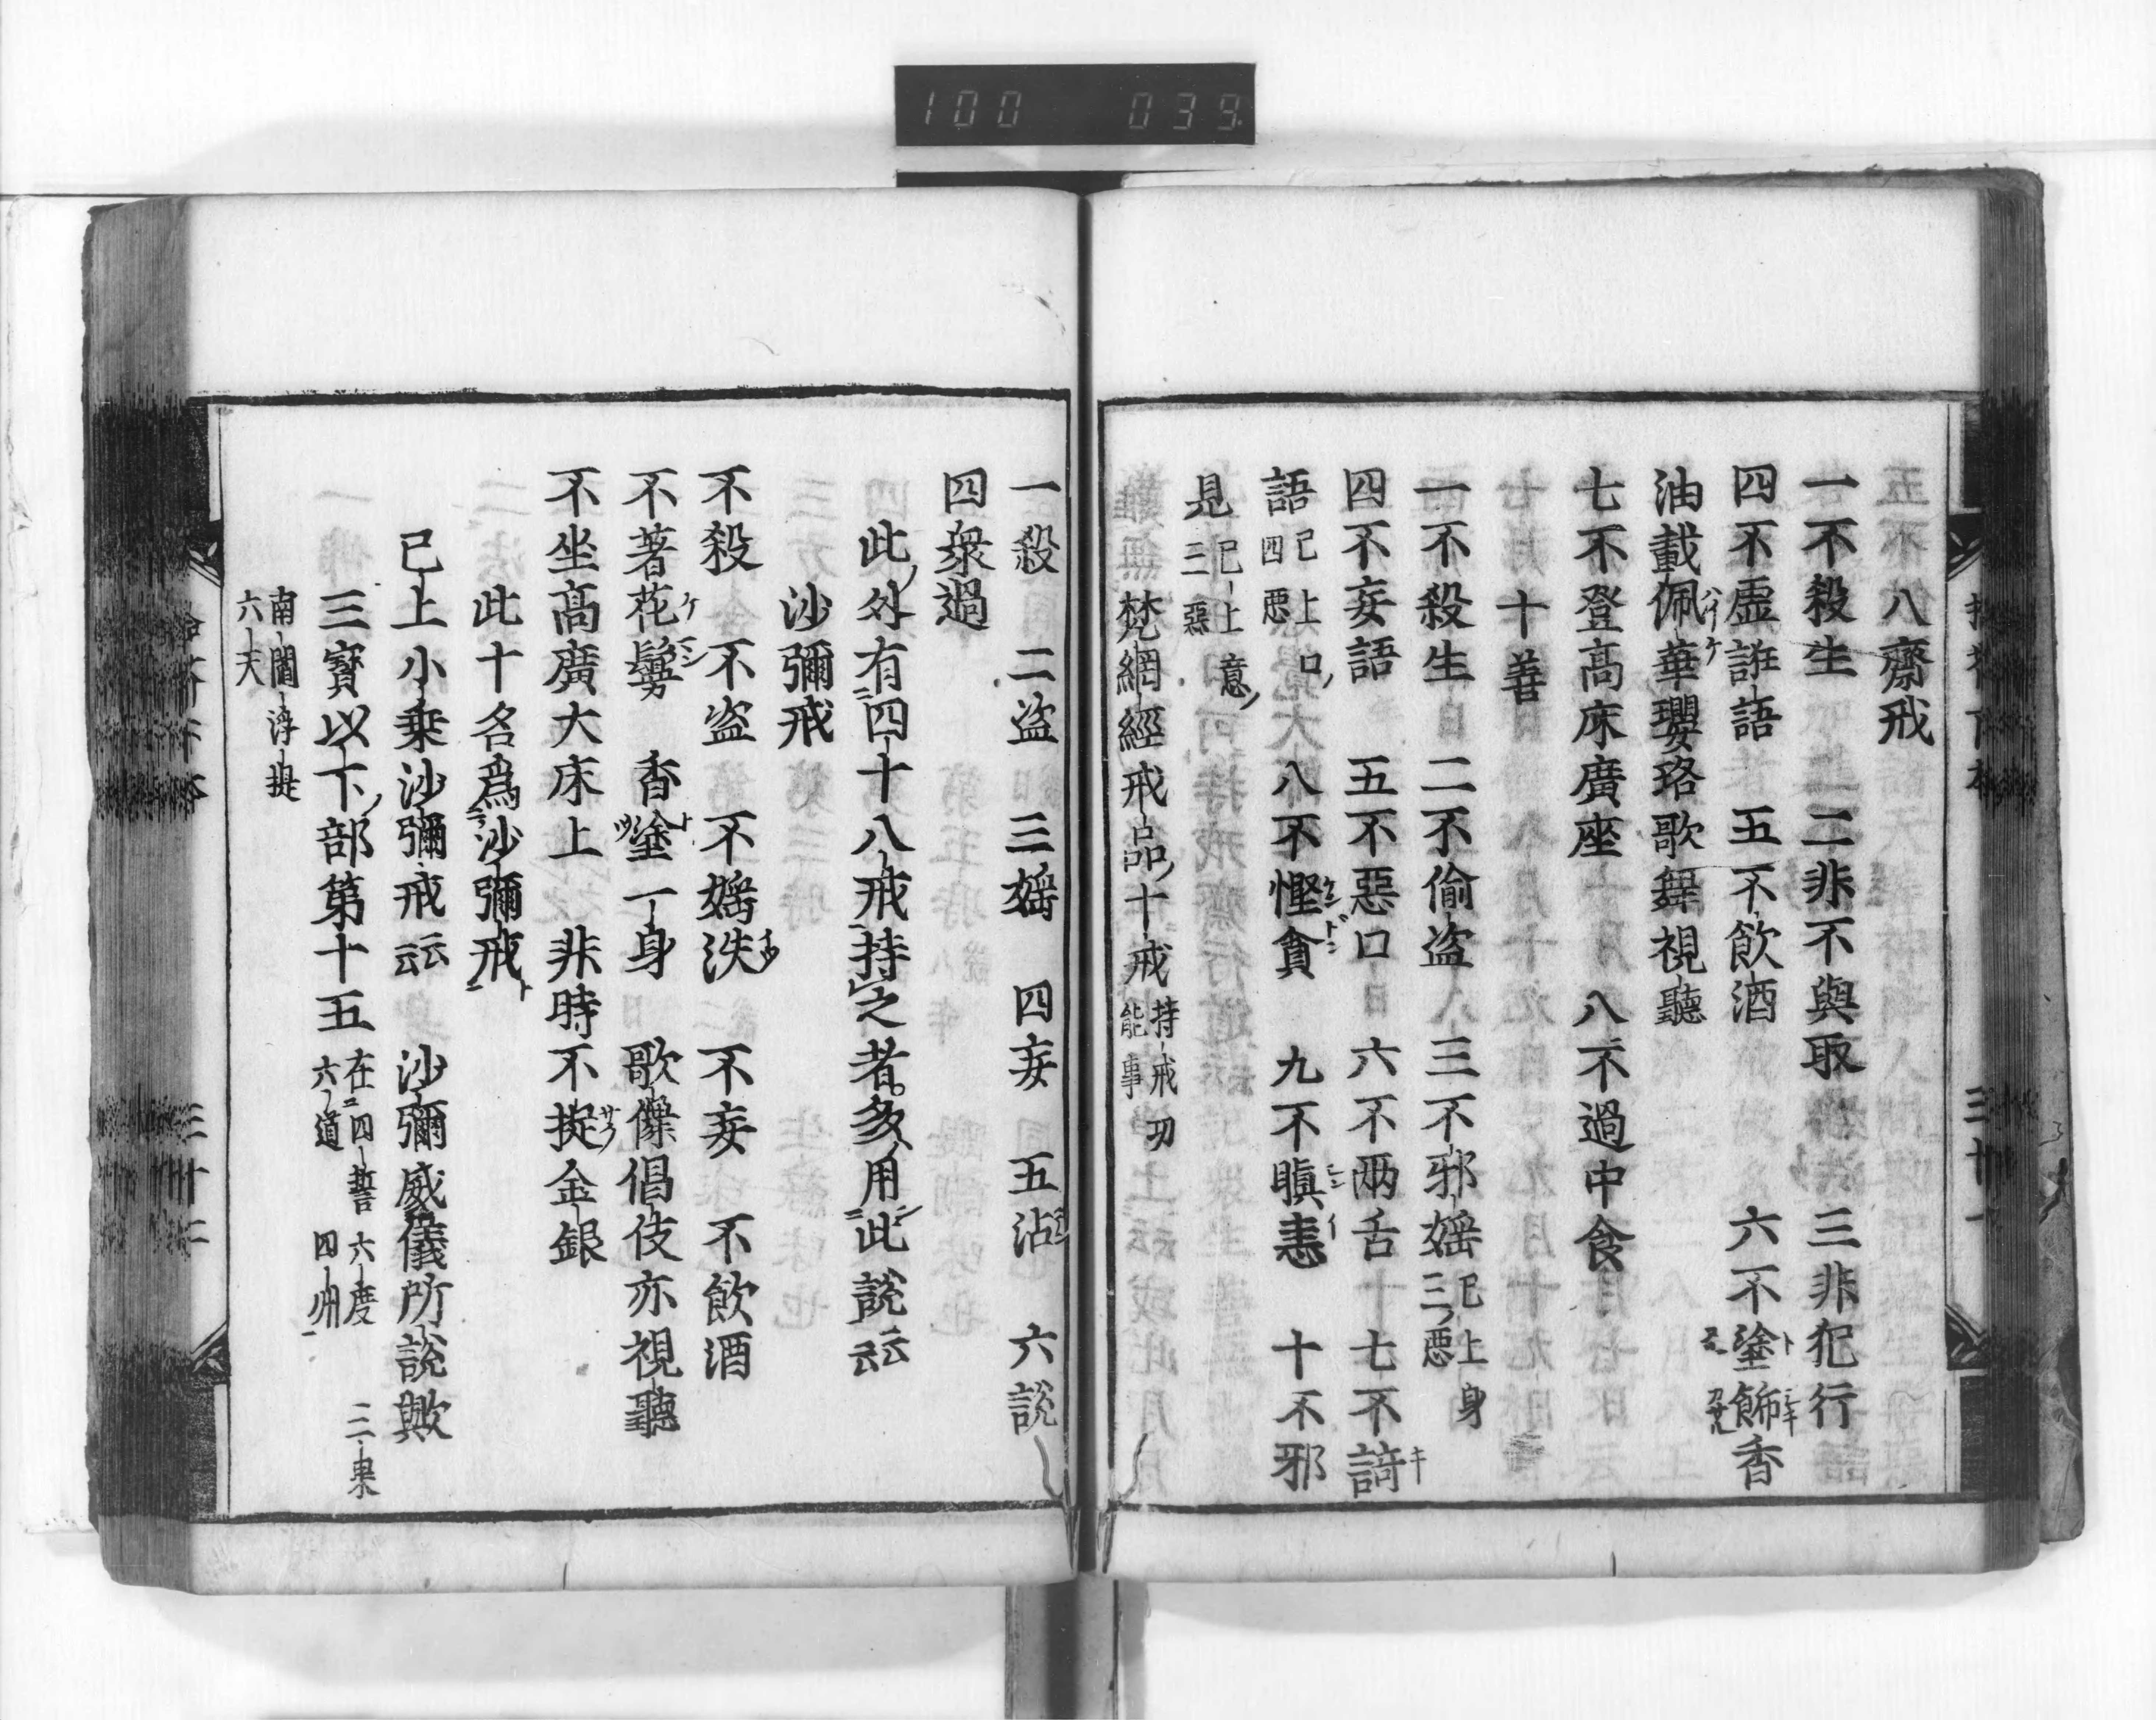 100 039
八齋戒
一不殺生 二非不與取 三非犯行
四不虛誑語 五不飲酒 六不塗飾香
油載佩華瓔珞歌舞視聽
七不登高床廣座 八不過中食
十善
一不殺生 二不偷盗 三不邪婬 已上身三惡
四不妄語 五不惡口 六不兩舌 七不𧫒
語 已上口四惡 八不慳貪 九不瞋恚 十不邪
見 已上意三惡
梵網經戒品十戒 持戒功能事
一殺 二盗 三婬 四妄 五沽 六説
四衆過
此外有四十八戒持之者多用此説云云
沙彌戒
不殺 不盗 不婬泆 不妄 不飲酒
不著花鬘 香塗身 歌儛倡伎亦視聽
不坐高廣大床上 非時 不捉金銀
此十名爲沙彌戒
已上小乗沙彌戒云云 沙彌威儀所説歟
三寳以下部第十五 在四誓 六度 二果 六道 四州
南閻浮提
六天
三十二